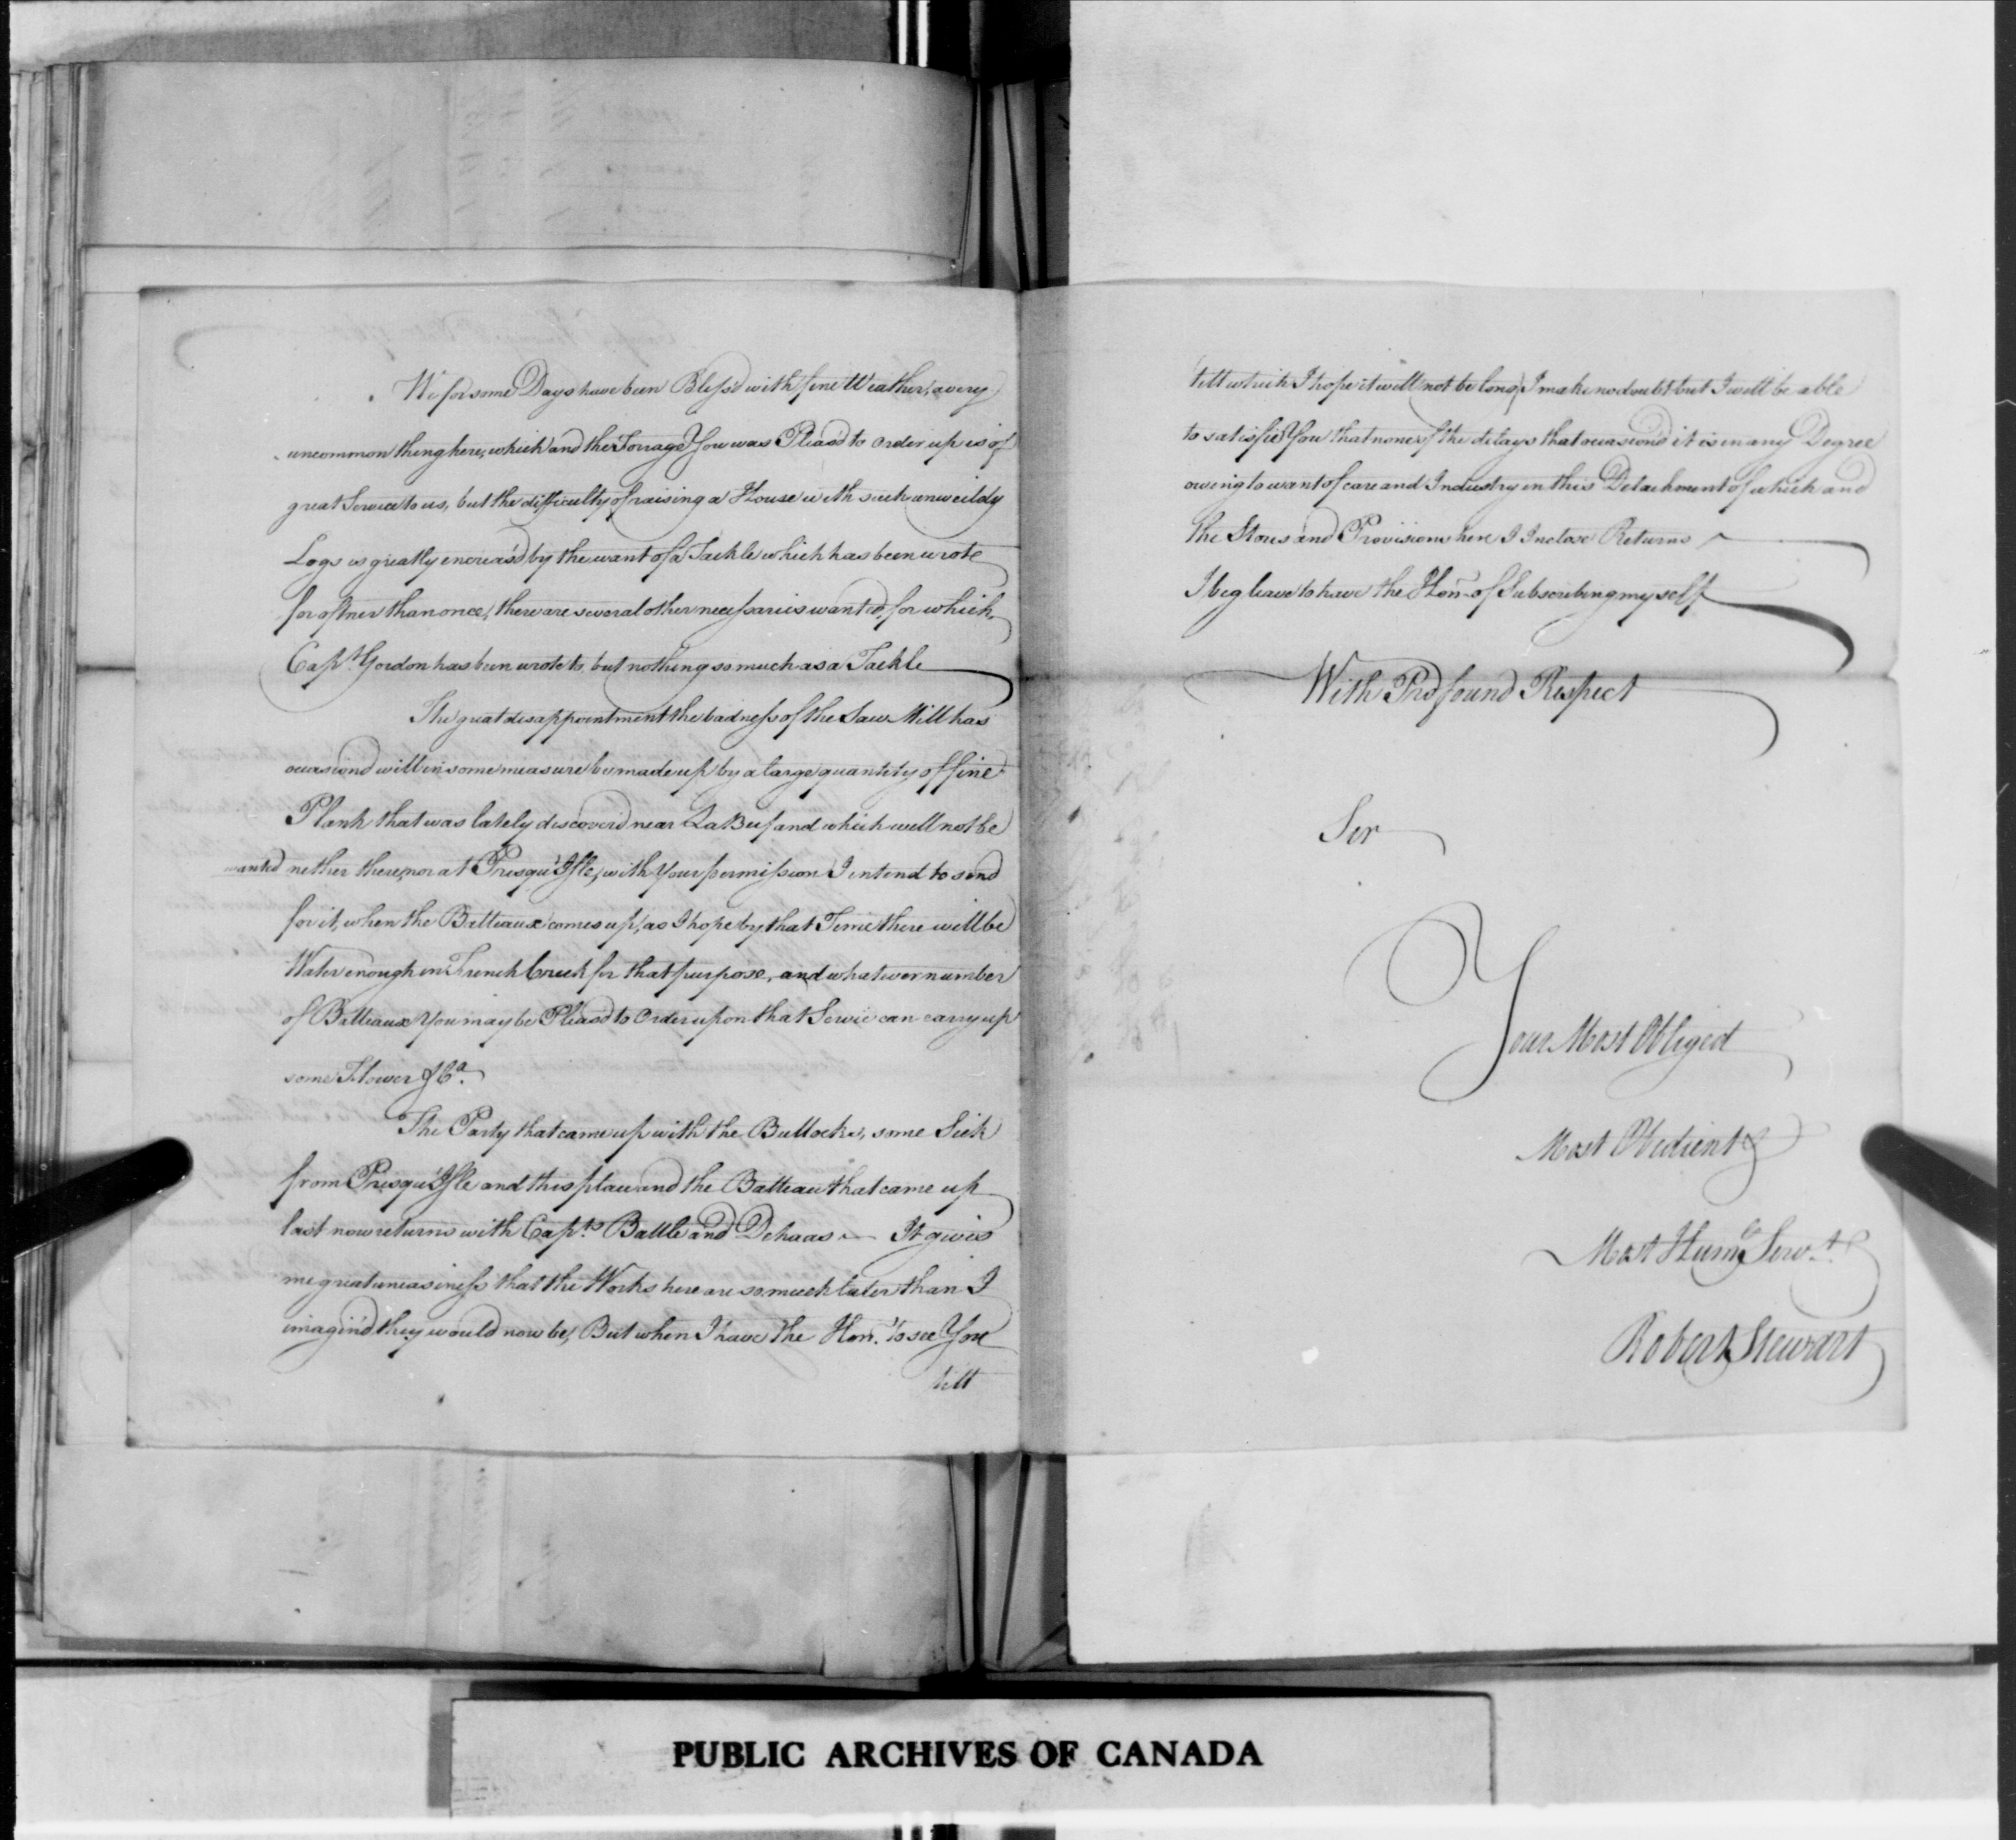 We for some Days have been Bless'd with fine Weather, a very
uncommon thing here, which and the Forrage You was Pleas'd to order up is of
great Service to us, but the difficulty of raising a House with such unweildy
Logs is greatly encreas'd by the want of a Tackle which has been wrote
for oftner than once, there are several other necessaries wanted, for which,
Capt. Gordon has been wrote to, but nothing so much as a Tackle
The great disappointment the badness of the Saw Mill has
occasiond will in some measure be made up by a large quantity of fine
Plank that was lately discoverd near La Beuf and which will not be
wanted nether there, nor at Presqu'Isle, with Your permission I intend to send
for it, when the Batteaux comes up, as I hope by that Time there will be
Water enough in French Creek for that purpose, and whatever number
of Batteaux You may be Pleasd to Order upon that Service can carry up
some Flower &Ca.
The Party that came up with the Bullocks, some Sick
from Presqu'Isle and this place and the Batteau that came up
last now returns with Capts. Battle and Dehaas — It gives
me great uneasiness that the Works here are so much later than I
imagin'd they would now be, But when I have the Honr. to see You
till
till which I hope it will not be long, I make no doubt but I will be able
to satisfie You that none of the delays that occasiond it is in any Degree
owing to want of care and Industry in this Detachment of which and
the Stores and Provisions here I Inclose Returns
I beg leave to have the Honr. of Subscribing myself
With Profound Respect
Sir
Your Most Obliged
Most Obedient &
Most Humle Servt.
Robert Stewart
PUBLIC ARCHIVES OF CANADA